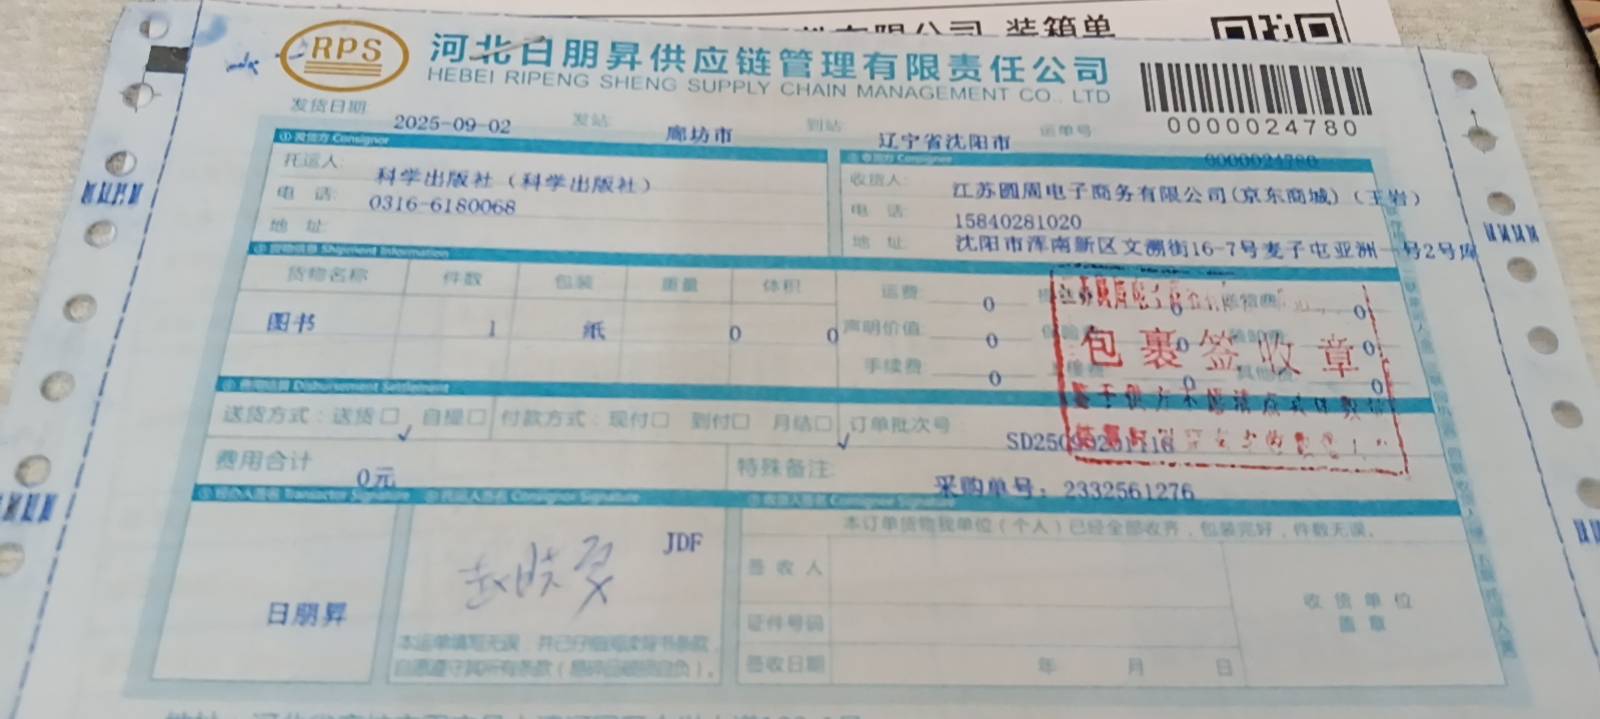 有限公司 装箱单
RPS
河北日朋昇供应链管理有限责任公司
HEBEI RIPENG SHENG SUPPLY CHAIN MANAGEMENT CO., LTD
0000024780
发货日期 2025-09-02 发站 廊坊市 到站 辽宁省沈阳市 运单号 0000024780
①发货方 Consignor
托运人: 科学出版社（科学出版社）
电 话: 0316-6180068
地 址:
②收货方 Consignee
收货人: 江苏圆周电子商务有限公司(京东商城)（王岩）
电 话: 15840281020
地 址: 沈阳市浑南新区文溯街16-7号麦子屯亚洲一号2号库
③货物信息 Shipment Information
货物名称 件数 包装 重量 体积
图书 1 纸 0 0
运费: 0 0 0
声明价值: 0 保险费: 0 0
手续费: 0 0 其他费: 0
包裹签收章
④费用结算 Disbursement Settlement
送货方式：送货□ 自提□ 付款方式：现付□ 到付□ 月结□ 订单批次号
费用合计 0元 特殊备注: 采购单号：2332561276
Transactor Signature Consignor Signature Consignee Signature
本订单货物我单位（个人）已经全部收齐，包装完好，件数无误。
日朋昇
JDF
本运单填写无误，并已仔细阅读背书条款，
自愿遵守其所有条款
签收人
证件号码
签收日期 年 月 日
收货单位
盖章